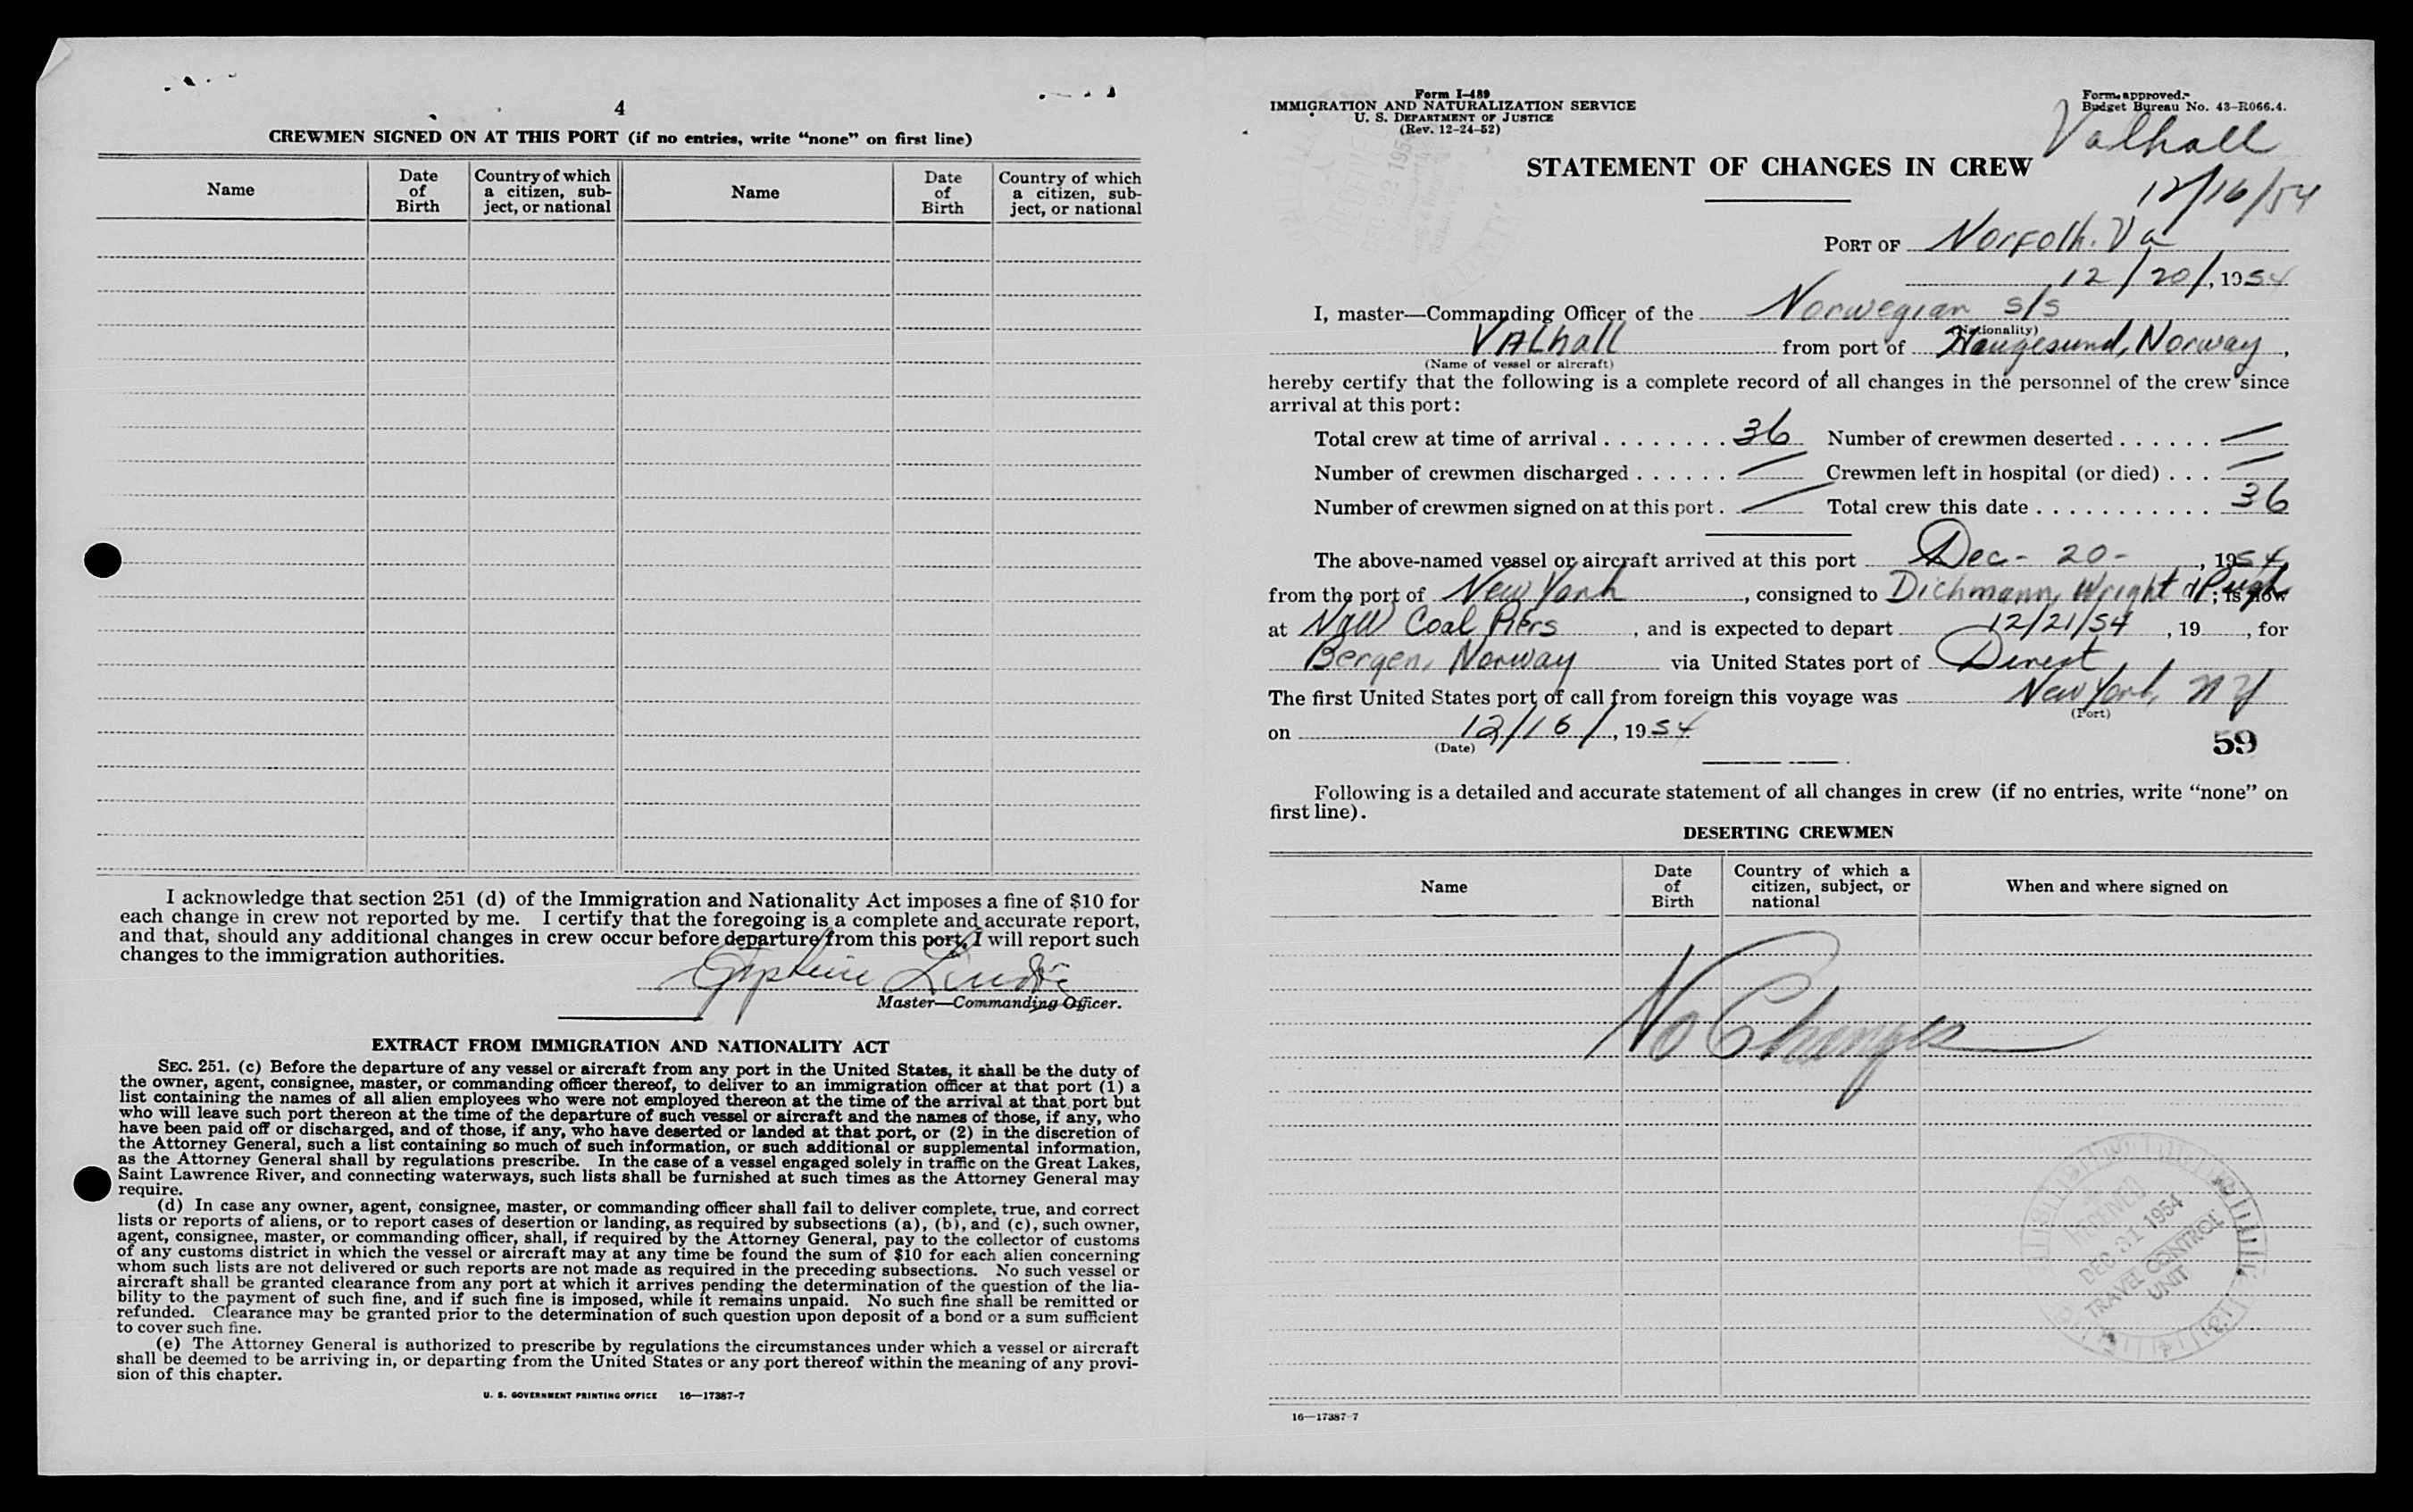 4
CREWMEN SIGNED ON AT THIS PORT (if no entries, write “none” on first line)
Name
Date of Birth
Country of which a citizen, sub-ject, or national
Name
Date of Birth
Country of which a citizen, sub-ject, or national
I acknowledge that section 251 (d) of the Immigration and Nationality Act imposes a fine of $10 for
each change in crew not reported by me. I certify that the foregoing is a complete and accurate report,
and that, should any additional changes in crew occur before departure from this port, I will report such
changes to the immigration authorities.
Master—Commanding Officer.
EXTRACT FROM IMMIGRATION AND NATIONALITY ACT
SEC. 251. (c) Before the departure of any vessel or aircraft from any port in the United States, it shall be the duty of
the owner, agent, consignee, master, or commanding officer thereof, to deliver to an immigration officer at that port (1) a
list containing the names of all alien employees who were not employed thereon at the time of the arrival at that port but
who will leave such port thereon at the time of the departure of such vessel or aircraft and the names of those, if any, who
have been paid off or discharged, and of those, if any, who have deserted or landed at that port, or (2) in the discretion of
the Attorney General, such a list containing so much of such information, or such additional or supplemental information,
as the Attorney General shall by regulations prescribe. In the case of a vessel engaged solely in traffic on the Great Lakes,
Saint Lawrence River, and connecting waterways, such lists shall be furnished at such times as the Attorney General may
require.
(d) In case any owner, agent, consignee, master, or commanding officer shall fail to deliver complete, true, and correct
lists or reports of aliens, or to report cases of desertion or landing, as required by subsections (a), (b), and (c), such owner,
agent, consignee, master, or commanding officer, shall, if required by the Attorney General, pay to the collector of customs
of any customs district in which the vessel or aircraft may at any time be found the sum of $10 for each alien concerning
whom such lists are not delivered or such reports are not made as required in the preceding subsections. No such vessel or
aircraft shall be granted clearance from any port at which it arrives pending the determination of the question of the lia-
bility to the payment of such fine, and if such fine is imposed, while it remains unpaid. No such fine shall be remitted or
refunded. Clearance may be granted prior to the determination of such question upon deposit of a bond or a sum sufficient
to cover such fine.
(e) The Attorney General is authorized to prescribe by regulations the circumstances under which a vessel or aircraft
shall be deemed to be arriving in, or departing from the United States or any port thereof within the meaning of any provi-
sion of this chapter.
U. S. GOVERNMENT PRINTING OFFICE 16—17387-7
Form I-489
IMMIGRATION AND NATURALIZATION SERVICE
U. S. DEPARTMENT OF JUSTICE
(Rev. 12-24-52)
Form approved.
Budget Bureau No. 43-R066.4.
Valhall
12/16/54
STATEMENT OF CHANGES IN CREW
PORT OF Norfolk. Va
12/20/, 1954
I, master—Commanding Officer of the Norwegian s/s
(Nationality)
VALhall from port of Haugesund, Norway,
(Name of vessel or aircraft)
hereby certify that the following is a complete record of all changes in the personnel of the crew since
arrival at this port:
Total crew at time of arrival . . . . . . . . 36 Number of crewmen deserted . . . . . . —
Number of crewmen discharged . . . . . . — Crewmen left in hospital (or died) . . . —
Number of crewmen signed on at this port . — Total crew this date . . . . . . . . . . . 36
The above-named vessel or aircraft arrived at this port Dec - 20 - , 1954
from the port of New York , consigned to Dichmann, Wright & Pugh ; is now
at N&W Coal Piers , and is expected to depart 12/21/54 , 19 , for
Bergen, Norway via United States port of Direct
The first United States port of call from foreign this voyage was New York, NY
(Port)
on 12/16/, 1954
(Date)
59
Following is a detailed and accurate statement of all changes in crew (if no entries, write “none” on
first line).
DESERTING CREWMEN
Name
Date of Birth
Country of which a citizen, subject, or national
When and where signed on
No Changes
RECEIVED
DEC 31 1954
TRAVEL CONTROL
UNIT
16—17387-7